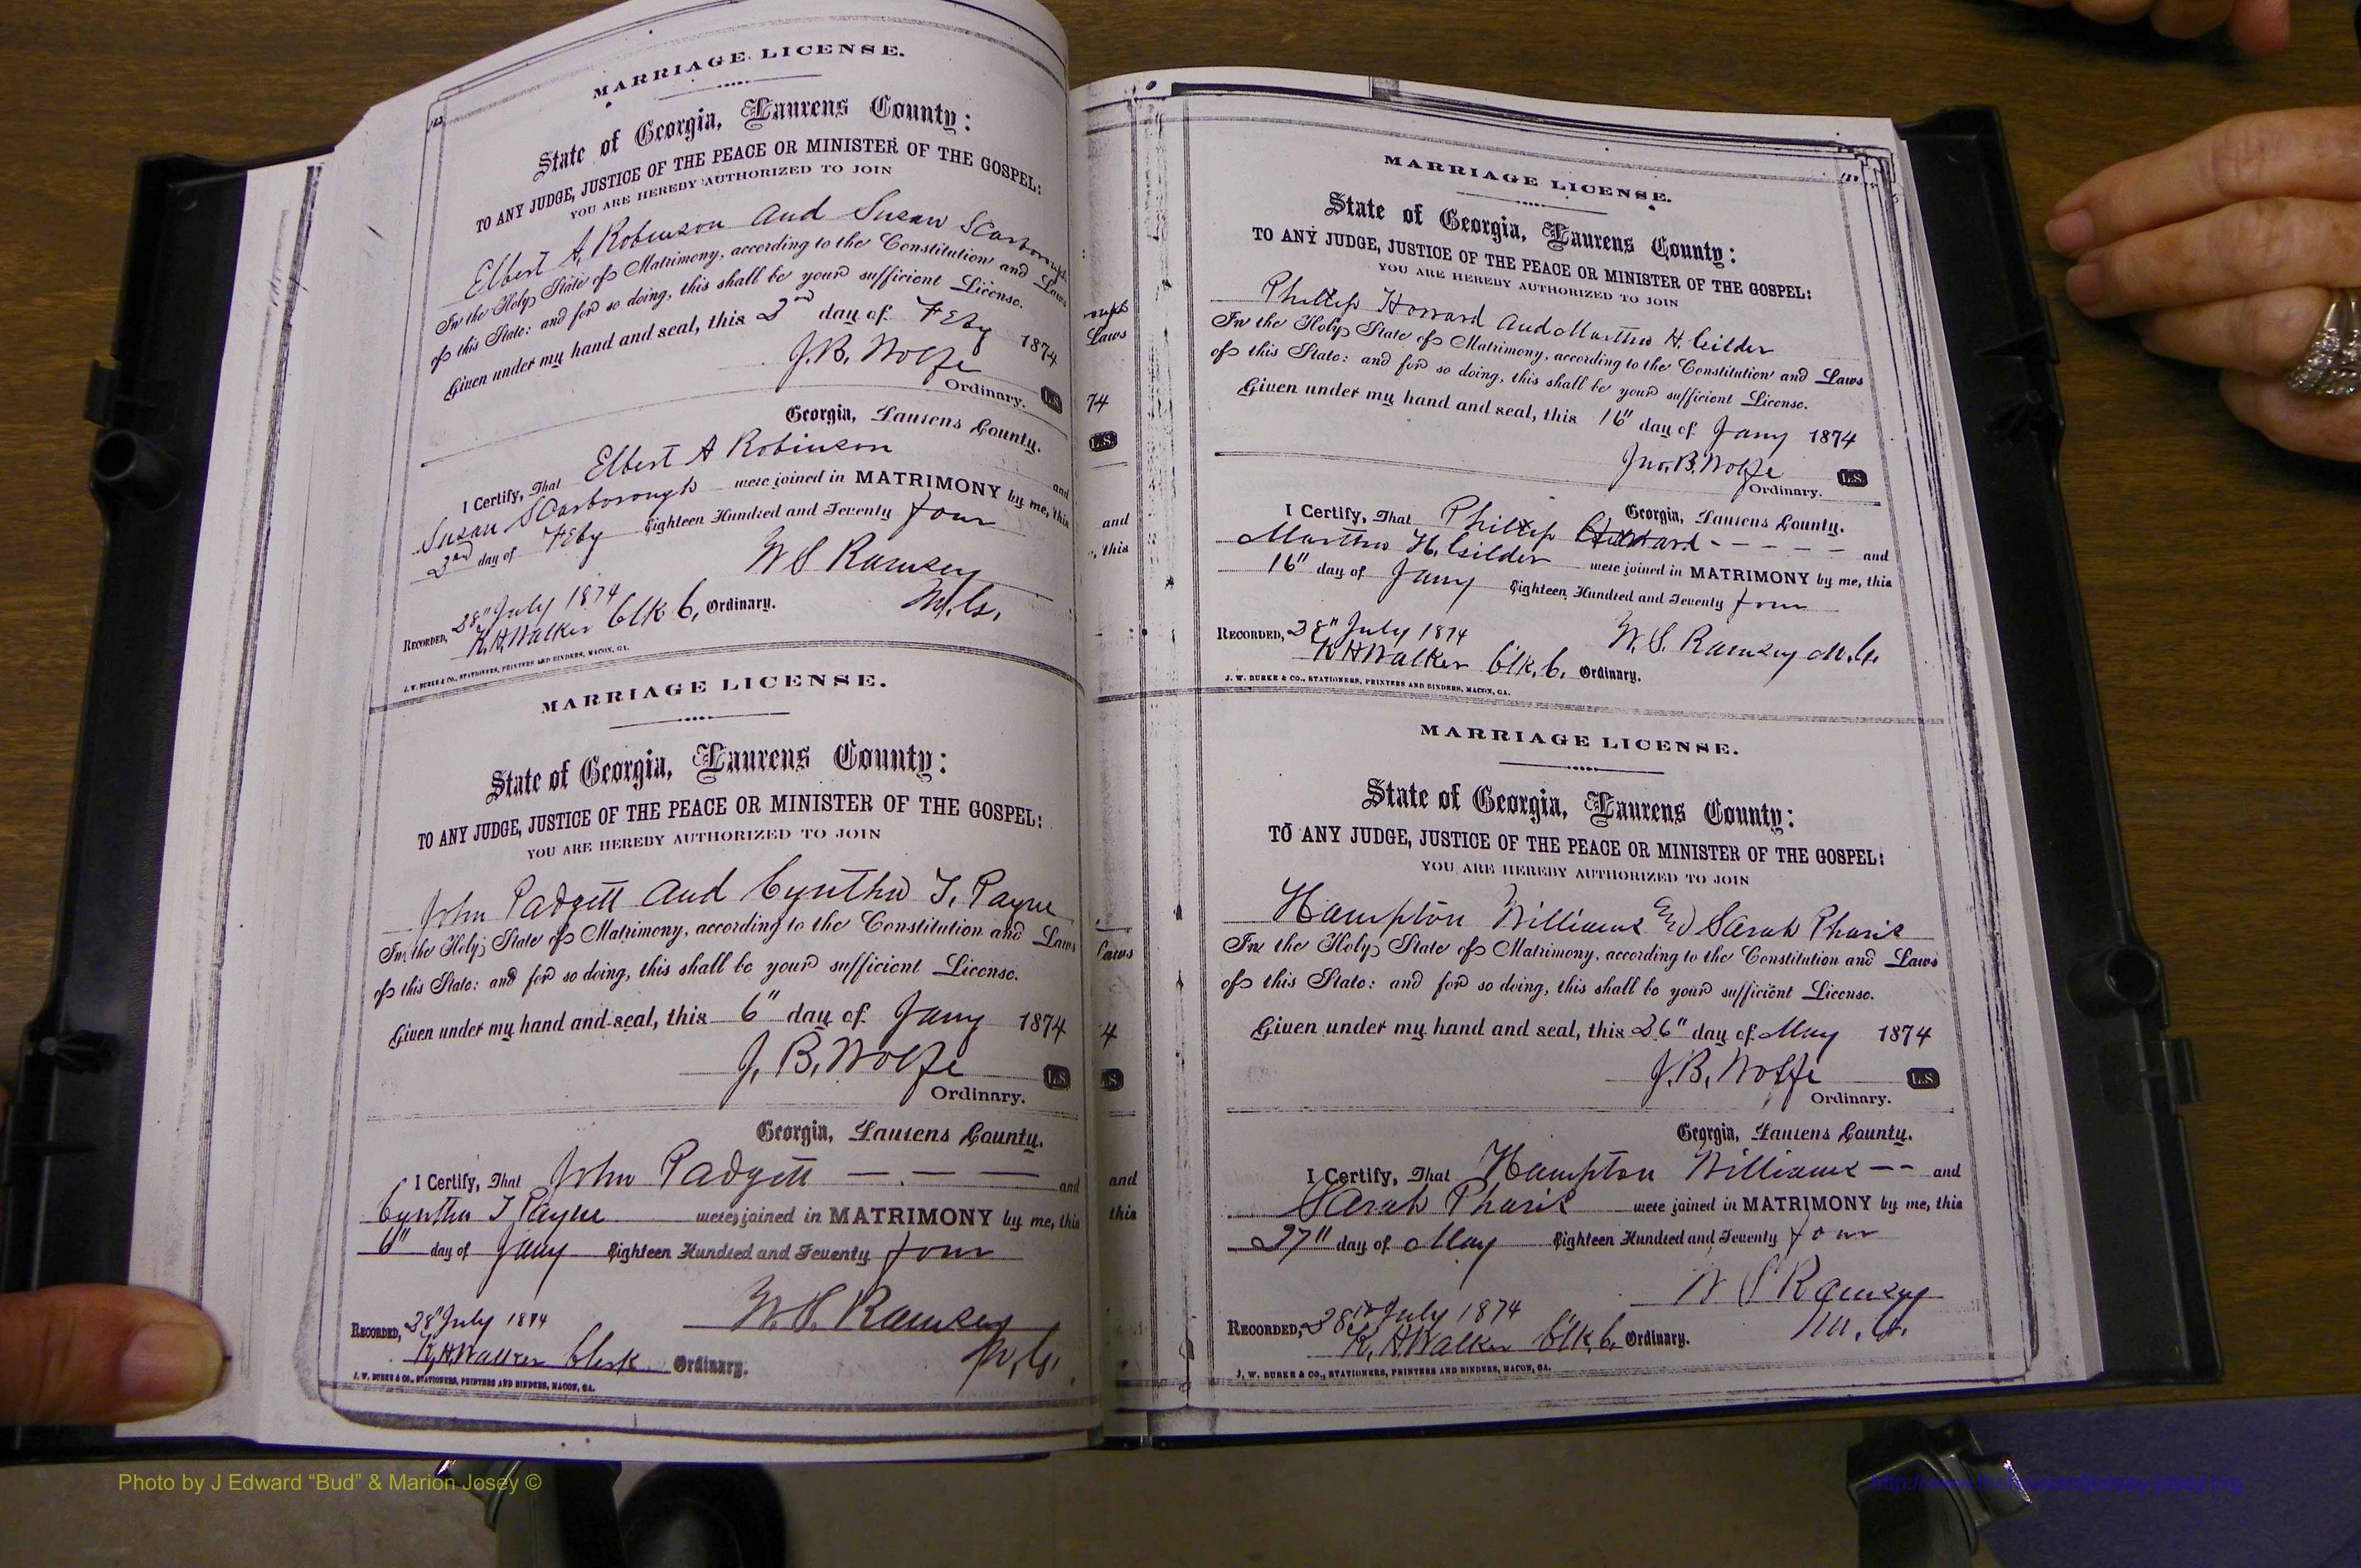 MARRIAGE LICENSE.
State of Georgia, Laurens County:
TO ANY JUDGE, JUSTICE OF THE PEACE OR MINISTER OF THE GOSPEL:
YOU ARE HEREBY AUTHORIZED TO JOIN
Elbert A. Robinson and Susan Scarborough
In the Holy State of Matrimony, according to the Constitution and Laws
of this State: and for so doing, this shall be your sufficient License.
Given under my hand and seal, this 2nd day of Feby 1874
J. B. Wolfe
Ordinary. L.S.
Georgia, Laurens County.
I Certify, That Elbert A Robinson and
Susan Scarborough were joined in MATRIMONY by me, this
2nd day of Feby Eighteen Hundred and Seventy four
W S Ramsey
M.G.
RECORDED, 28" July 1874
K. H. Walker Clk C. Ordinary.
J. W. BURKE & CO., STATIONERS, PRINTERS AND BINDERS, MACON, GA.
MARRIAGE LICENSE.
State of Georgia, Laurens County:
TO ANY JUDGE, JUSTICE OF THE PEACE OR MINISTER OF THE GOSPEL:
YOU ARE HEREBY AUTHORIZED TO JOIN
John Padgett and Cyntha T. Payne
In the Holy State of Matrimony, according to the Constitution and Laws
of this State: and for so doing, this shall be your sufficient License.
Given under my hand and seal, this 6" day of Jany 1874
J. B. Wolfe
Ordinary. L.S.
Georgia, Laurens County.
I Certify, That John Padgett — — — and
Cyntha T Payne were joined in MATRIMONY by me, this
6" day of Jany Eighteen Hundred and Seventy four
W. S. Ramsey
M.G.
RECORDED, 28" July 1874
K. H. Walker Clerk Ordinary.
J. W. BURKE & CO., STATIONERS, PRINTERS AND BINDERS, MACON, GA.
Laws
74
L.S.
and
, this
Laws
4
L.S.
and
this
MARRIAGE LICENSE.
State of Georgia, Laurens County:
TO ANY JUDGE, JUSTICE OF THE PEACE OR MINISTER OF THE GOSPEL:
YOU ARE HEREBY AUTHORIZED TO JOIN
Phillip Howard and Martha H. Gilder
In the Holy State of Matrimony, according to the Constitution and Laws
of this State: and for so doing, this shall be your sufficient License.
Given under my hand and seal, this 16" day of Jany 1874
Jno. B. Wolfe
Ordinary. L.S.
Georgia, Laurens County.
I Certify, That Phillip Howard - - - - - and
Martha H. Gilder were joined in MATRIMONY by me, this
16" day of Jany Eighteen Hundred and Seventy four
W. S. Ramsey M.G.
RECORDED, 28" July 1874
K H Walker Clk, C. Ordinary.
J. W. BURKE & CO., STATIONERS, PRINTERS AND BINDERS, MACON, GA.
MARRIAGE LICENSE.
State of Georgia, Laurens County:
TO ANY JUDGE, JUSTICE OF THE PEACE OR MINISTER OF THE GOSPEL:
YOU ARE HEREBY AUTHORIZED TO JOIN
Hampton Williams And Sarah Pharis
In the Holy State of Matrimony, according to the Constitution and Laws
of this State: and for so doing, this shall be your sufficient License.
Given under my hand and seal, this 26" day of May 1874
J. B. Wolfe
Ordinary. L.S.
Georgia, Laurens County.
I Certify, That Hampton Williams -- and
Sarah Pharis were joined in MATRIMONY by me, this
27" day of May Eighteen Hundred and Seventy four
W S Ramsey
M.G.
RECORDED, 28" July 1874
K. H. Walker Clk, C. Ordinary.
J. W. BURKE & CO., STATIONERS, PRINTERS AND BINDERS, MACON, GA.
Photo by J Edward “Bud” & Marion Josey ©